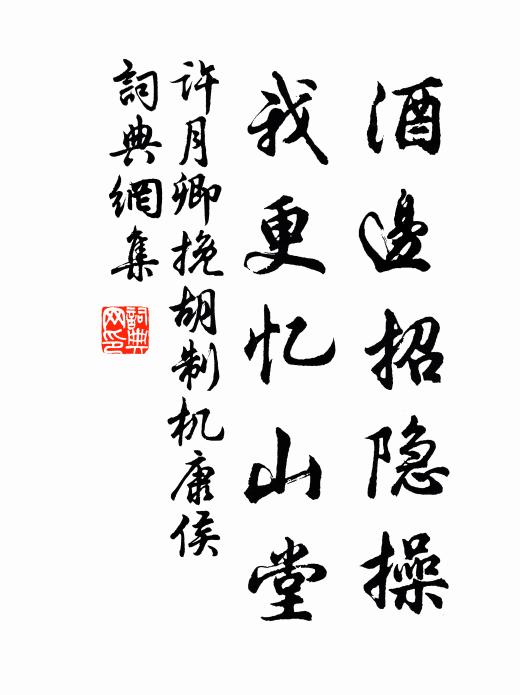 酒邊招隐操
我更忆山堂
许月卿挽胡制机康侯
詞典網集
詞典
网印